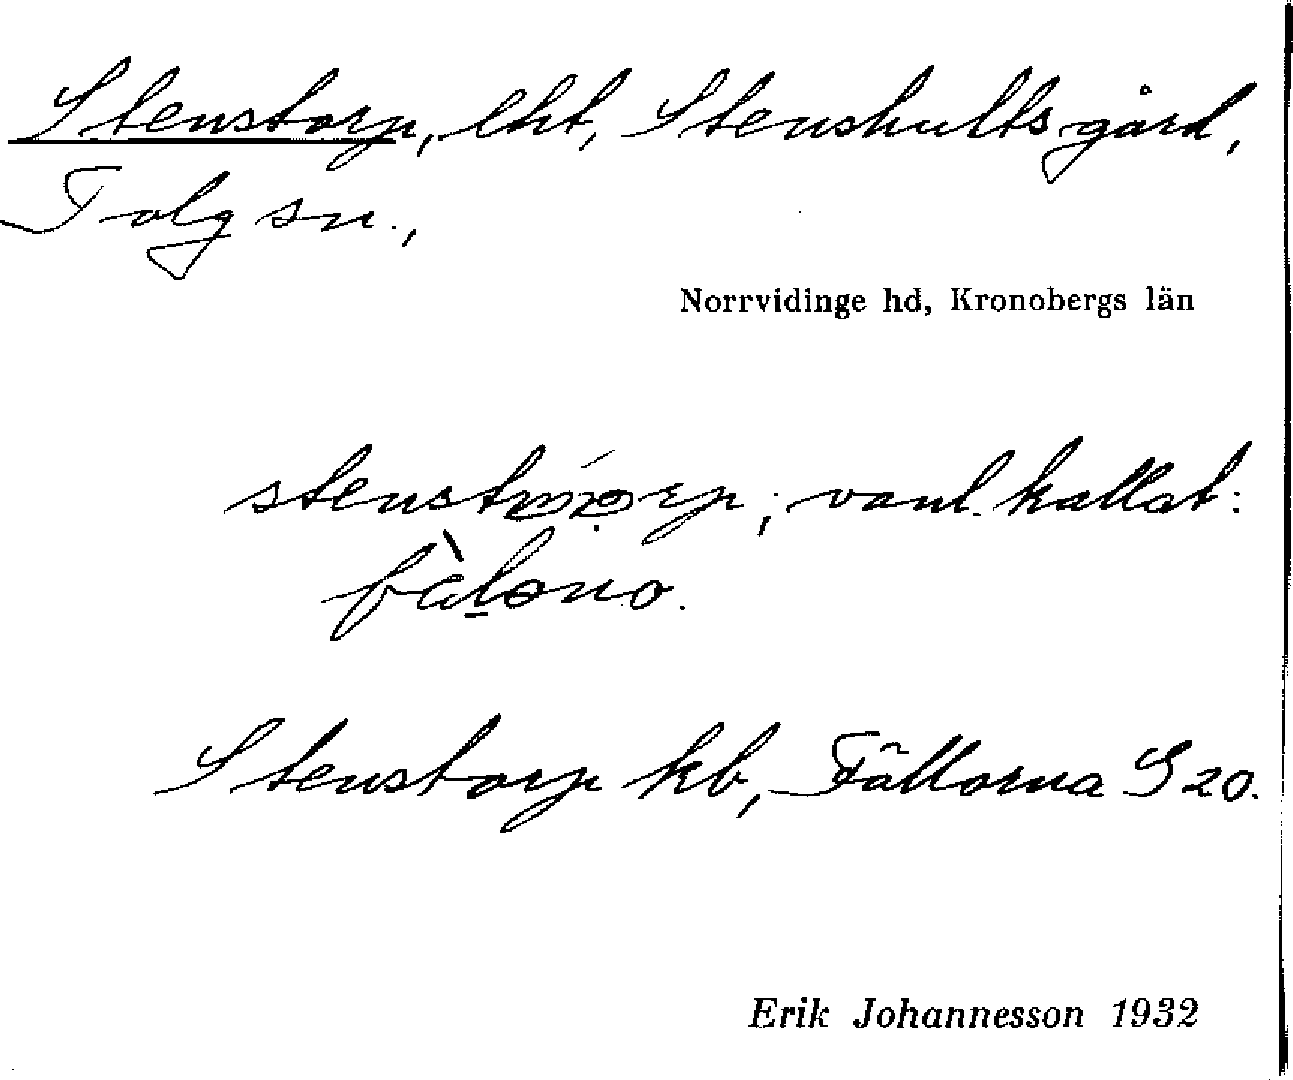 Stenstorp, lht, Stenshults gård,
Tolg sn.,
Norrvidinge hd, Kronobergs län
vanl. kallat:
Stenstorp kb, Fällorna S 20.
Erik Johannesson 1932